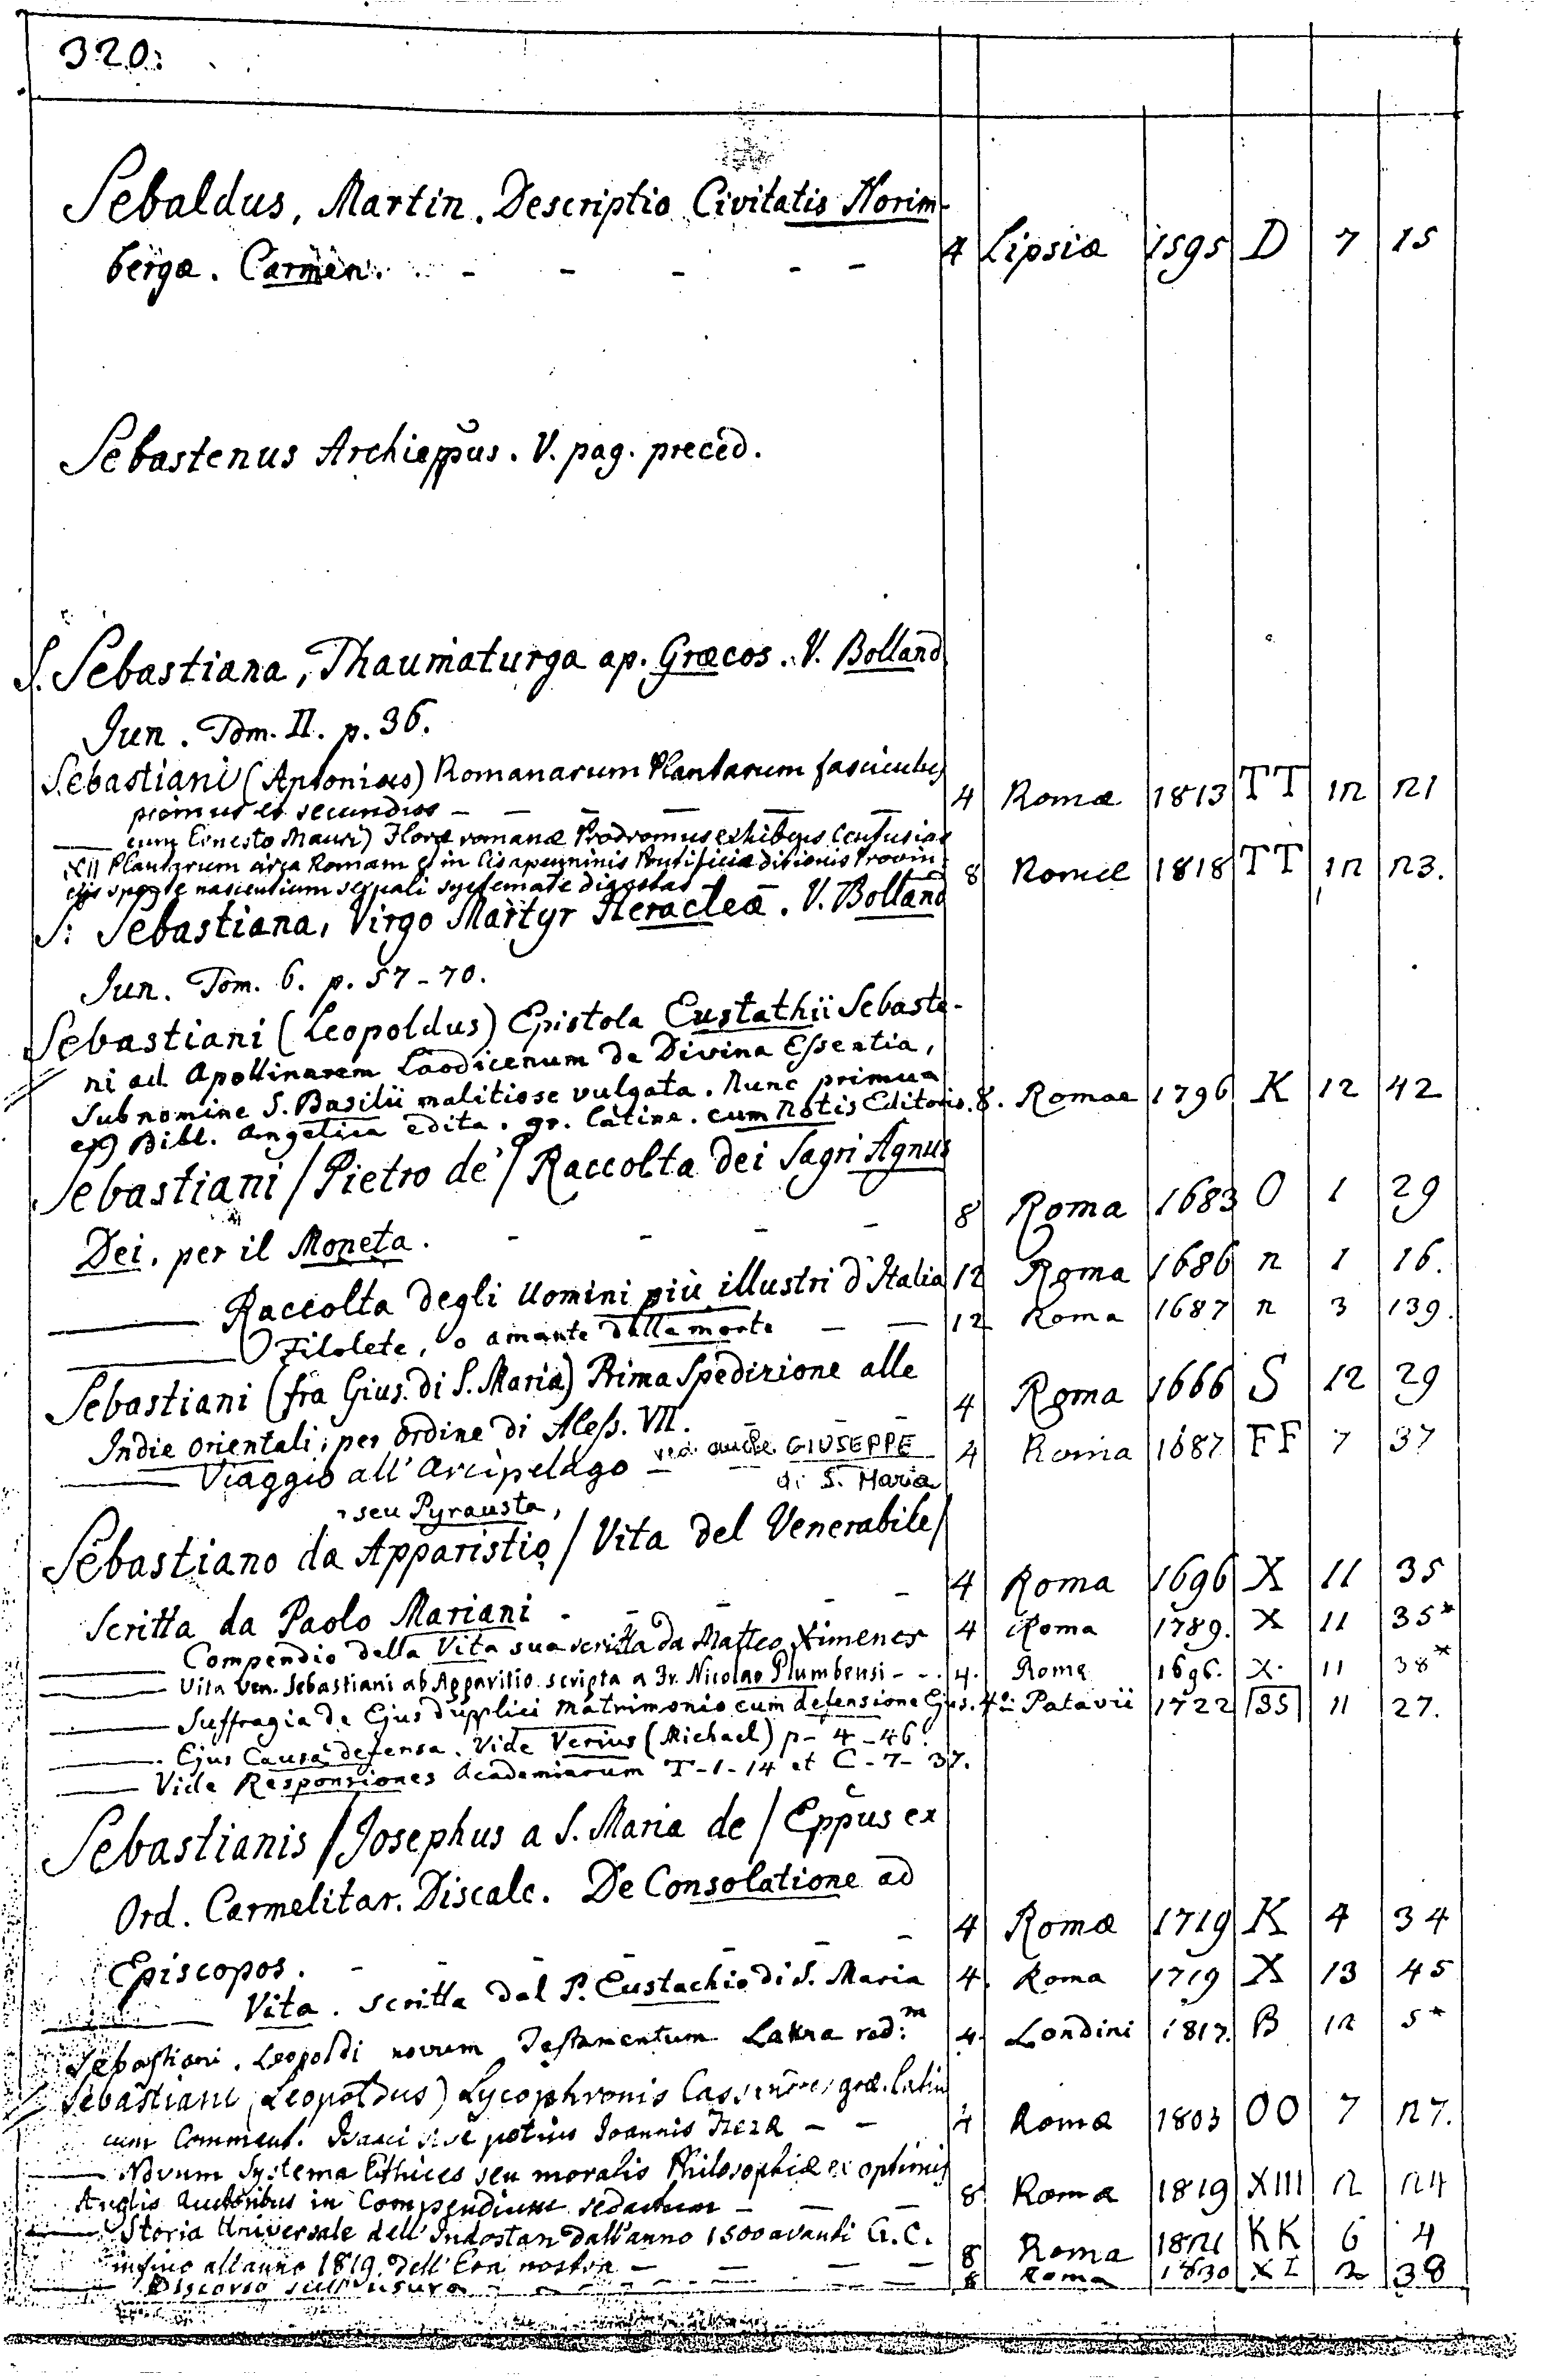 320:
Sebaldus, Martin. Descriptio Civitatis Norim-
bergæ. Carmen. - - - - - 4 Lipsiæ 1595 D 7 15
Sebastenus Archieppus. V. pag. preced.
S. Sebastiana, Thaumaturga ap. Græcos. V. Bolland
Jun. Tom. II. p. 36.
Sebastiani (Antonius) Romanarum Plantarum fasciculus
primus et secundus - - - - - - 4 Romæ 1813 TT 12 21
—— cum Ernesto Mauri) Floræ romanæ Prodromus exhibens Centurias
XII Plantarum circa Romam et in Cisapenninis Pontificiæ ditionis Provin-
ciis sponte nascentium sexuali systemate digestas - 8 Romæ 1818 TT 12 23.
S: Sebastiana, Virgo Martyr Heracleæ. V. Bolland
Jun. Tom. 6. p. 57-70.
Sebastiani (Leopoldus) Epistola Eustathii Sebaste-
ni ad Apollinarem Laodicenum de Divina Essentia,
Sub nomine S. Basilii malitiose vulgata. Nunc primum
ex Bibl. Angelica edita. gr. latine. cum Notis Editoris. 8. Romae 1796 K 12 42
Sebastiani / Pietro de' / Raccolta dei Sagri Agnus
Dei, per il Moneta. - - - - 8 Roma 1683 O 1 29
—— Raccolta degli Uomini più illustri d'Italia 12 Roma 1686 n 1 16.
—— O Filolete, o amante della morte - - 12 Roma 1687 n 3 139.
Sebastiani (fra Gius. di S. Maria) Prima Spedizione alle
Indie orientali, per ordine di Aless. VII. - - - 4 Roma 1666 S 12 29
—— Viaggio all'Arcipelago - vedi anche GIUSEPPE 4 Roma 1687 FF 7 37
di S. Maria
seu Pyrausta,
Sebastiano da Apparistio / Vita del Venerabile /
Scritta da Paolo Mariani - - - - - 4 Roma 1696 X 11 35
—— Compendio della Vita sua scritta da Matteo Ximenes 4 Roma 1789. X 11 35*
—— Vita Ven. Sebastiani ab Apparitio scripta a Fr. Nicolao Plumbensi - - . 4. Romæ 1696. X. 11 38*
—— Suffragia de Ejus dupplici Matrimonio cum defensione Ejus. 4º: Patavii 1722 SS 11 27.
—— Ejus Causa defensa. Vide Verius (Michael) p- 4 -46.
—— Vide Responsiones Academiarum T-1-14 et C-7-37.
Sebastianis / Josephus a S. Maria de / Eppus ex
Ord. Carmelitar. Discalc. De Consolatione ad
Episcopos. - - - - - - 4 Romæ 1719 K 4 34
—— Vita. scritta dal P. Eustachio di S. Maria 4. Roma 1719 X 13 45
Sebastiani, Leopoldi novum Testamentum red:m 4. Londini 1817. B 12 5*
Sebastiani (Leopoldus) Lycophronis græ. latin
cum Comment. Isaaci sive potius Joannis - - 4 Romæ 1803 OO 7 27.
—— Novum Systema Ethices seu moralis Philosophiæ ex optimis
Anglis Auctoribus in Compendium redactum - - - 8 Romæ 1819 XIII 2 24
—— Storia Universale dell'Indostan dall'anno 1500 avanti G. C.
infino all'anno 1819. dell'Era nostra - - - - 8 Roma 1821 KK 6 4
—— Discorso sull'usura - - - - - 8 Roma 1830 XI 2 38